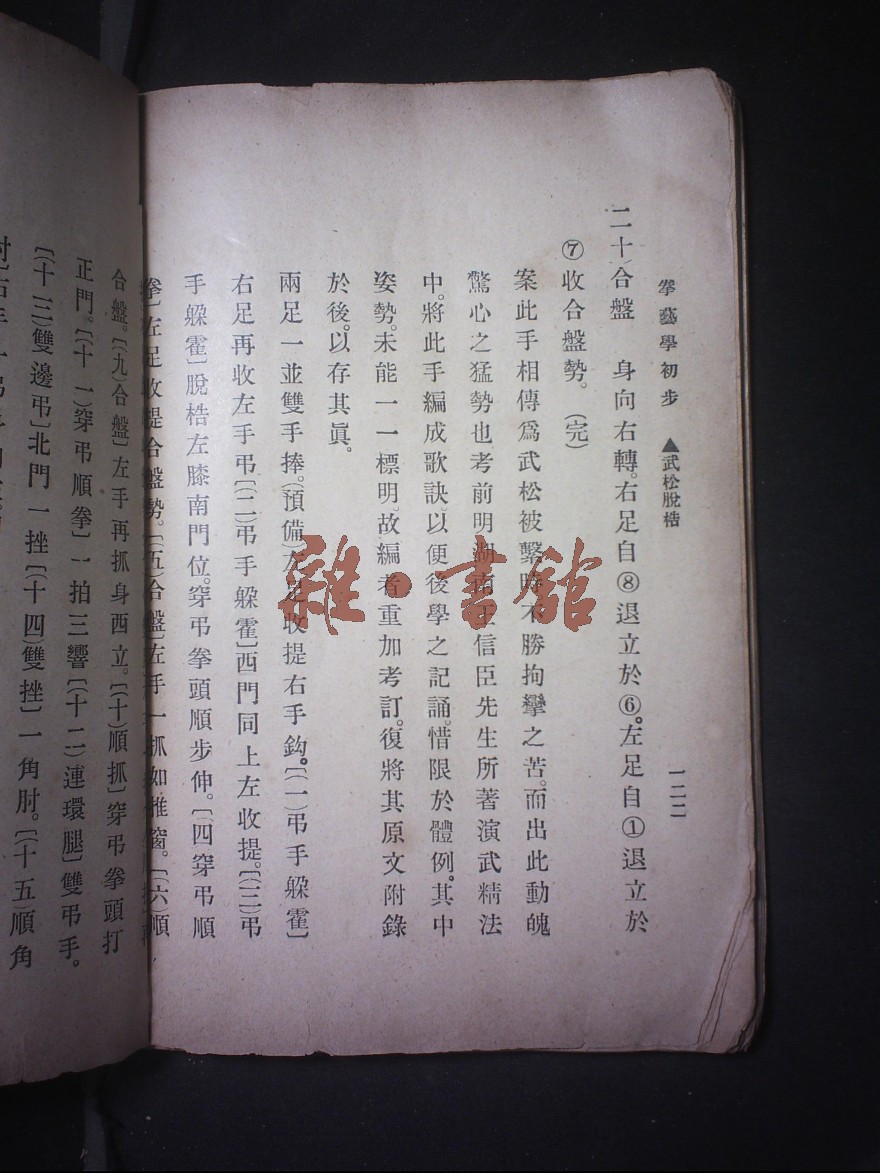 拳藝學初步 ▲武松脫梏 一二二
二十)合盤 身向右轉。右足自⑧退立於⑥。左足自①退立於
⑦收合盤勢。(完)
案此手相傳爲武松被繫時不勝拘攣之苦。而出此動魄
驚心之猛勢也考前明湖南王信臣先生所著演武精法
中。將此手編成歌訣以便後學之記誦。惜限於體例。其中
姿勢。未能一一標明。故編者重加考訂。復將其原文附錄
於後。以存其眞。
兩足一並雙手捧。(預備)左足收提右手鈎。〔(一)弔手躲霍〕
右足再收左手弔〔(二)弔手躲霍〕西門同上左收提。〔(三)弔
手躲霍〕脫梏左膝南門位。穿弔拳頭順步伸。〔(四穿弔順
拳〕左足收提合盤勢。〔(五)合盤〕左手一抓如推窗。〔(六)順
合盤。〔(九)合盤〕左手再抓身西立。〔(十)順抓〕穿弔拳頭打
正門。〔(十一)穿弔順拳〕一拍三響〔(十二)連環腿〕雙弔手。
〔(十三)雙邊弔〕北門一挫〔(十四)雙挫〕一角肘。〔(十五順角
雜·書館